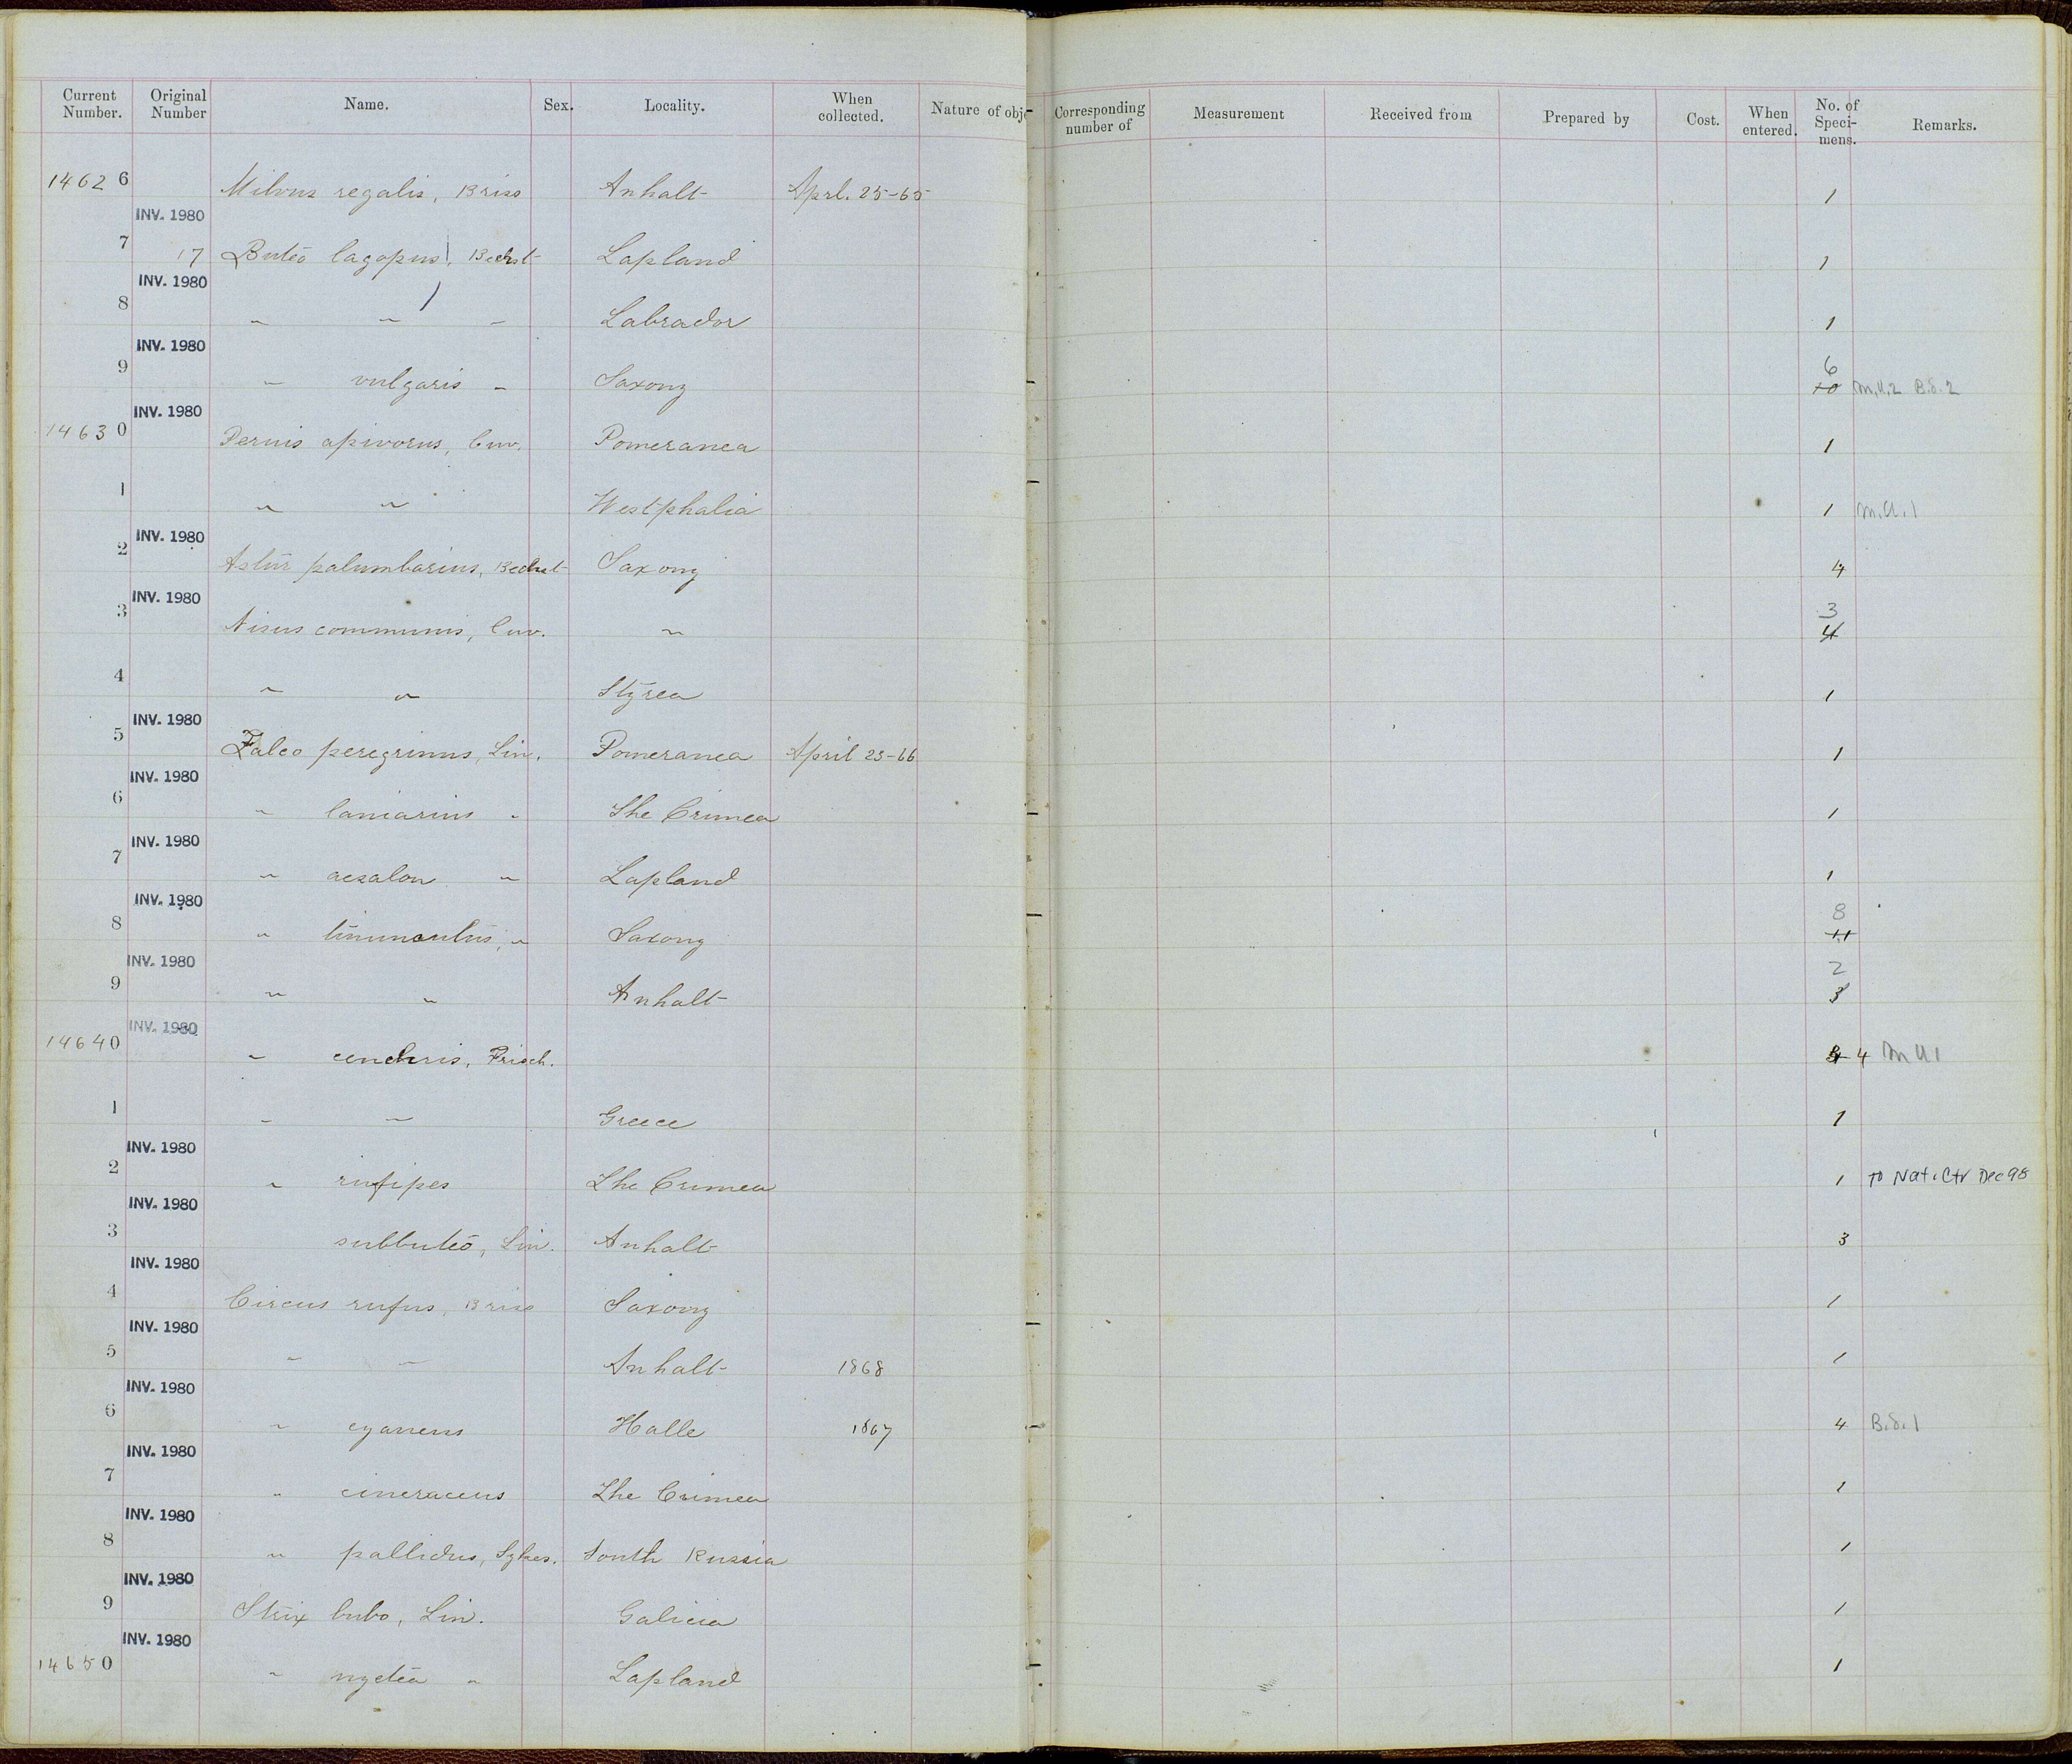 Current Number. Original Number Name. Sex. Locality. When collected. Nature of obj Corresponding number of Measurement Received from Prepared by Cost. When entered. No. of Speci-mens. Remarks.
14626 Milvus regalis, Briss Anhalt Aprl. 25-65 1
INV. 1980
7 17 Buteo lagopus, Bechst Lapland 1
INV. 1980
8 " " " Labrador 1
INV. 1980
9 " vulgaris " Saxony 6 10 M.U.2 B.S.2
INV. 1980
14630 Pernis apivorus, Cuv. Pomeranea 1
1 " " Westphalia 1 M.U.1
INV. 1980
2 Astur palumbarius, Bechst Saxony 4
INV. 1980
3 Nisus communis, Cuv. " 3 4
4 " " Styrea 1
INV. 1980
5 Falco peregrinus, Lin. Pomeranea April 23-66 1
INV. 1980
6 " laniarius " The Crimea 1
INV. 1980
7 " aesalon " Lapland 1
INV. 1980
8 " tinunculus, " Saxony 8 11
INV. 1980
9 " " Anhalt 2 3
INV. 1980
14640 " cenchris, Frisch. 4 M U 1
1 " " Greece 1
INV. 1980
2 " rufipes The Crimea 1 To Nat. Ctr Dec 98
INV. 1980
3 subbuteo, Lin. Anhalt 3
INV. 1980
4 Circus rufus, Briss Saxony 1
INV. 1980
5 " " Anhalt 1868 1
INV. 1980
6 " cyaneus Halle 1867 4 B.S.1
INV. 1980
7 " cineraceus The Crimea 1
INV. 1980
8 " pallidus, Sykes. South Russia 1
INV. 1980
9 Strix bubo, Lin. Galicia 1
INV. 1980
14650 " nyctea " Lapland 1